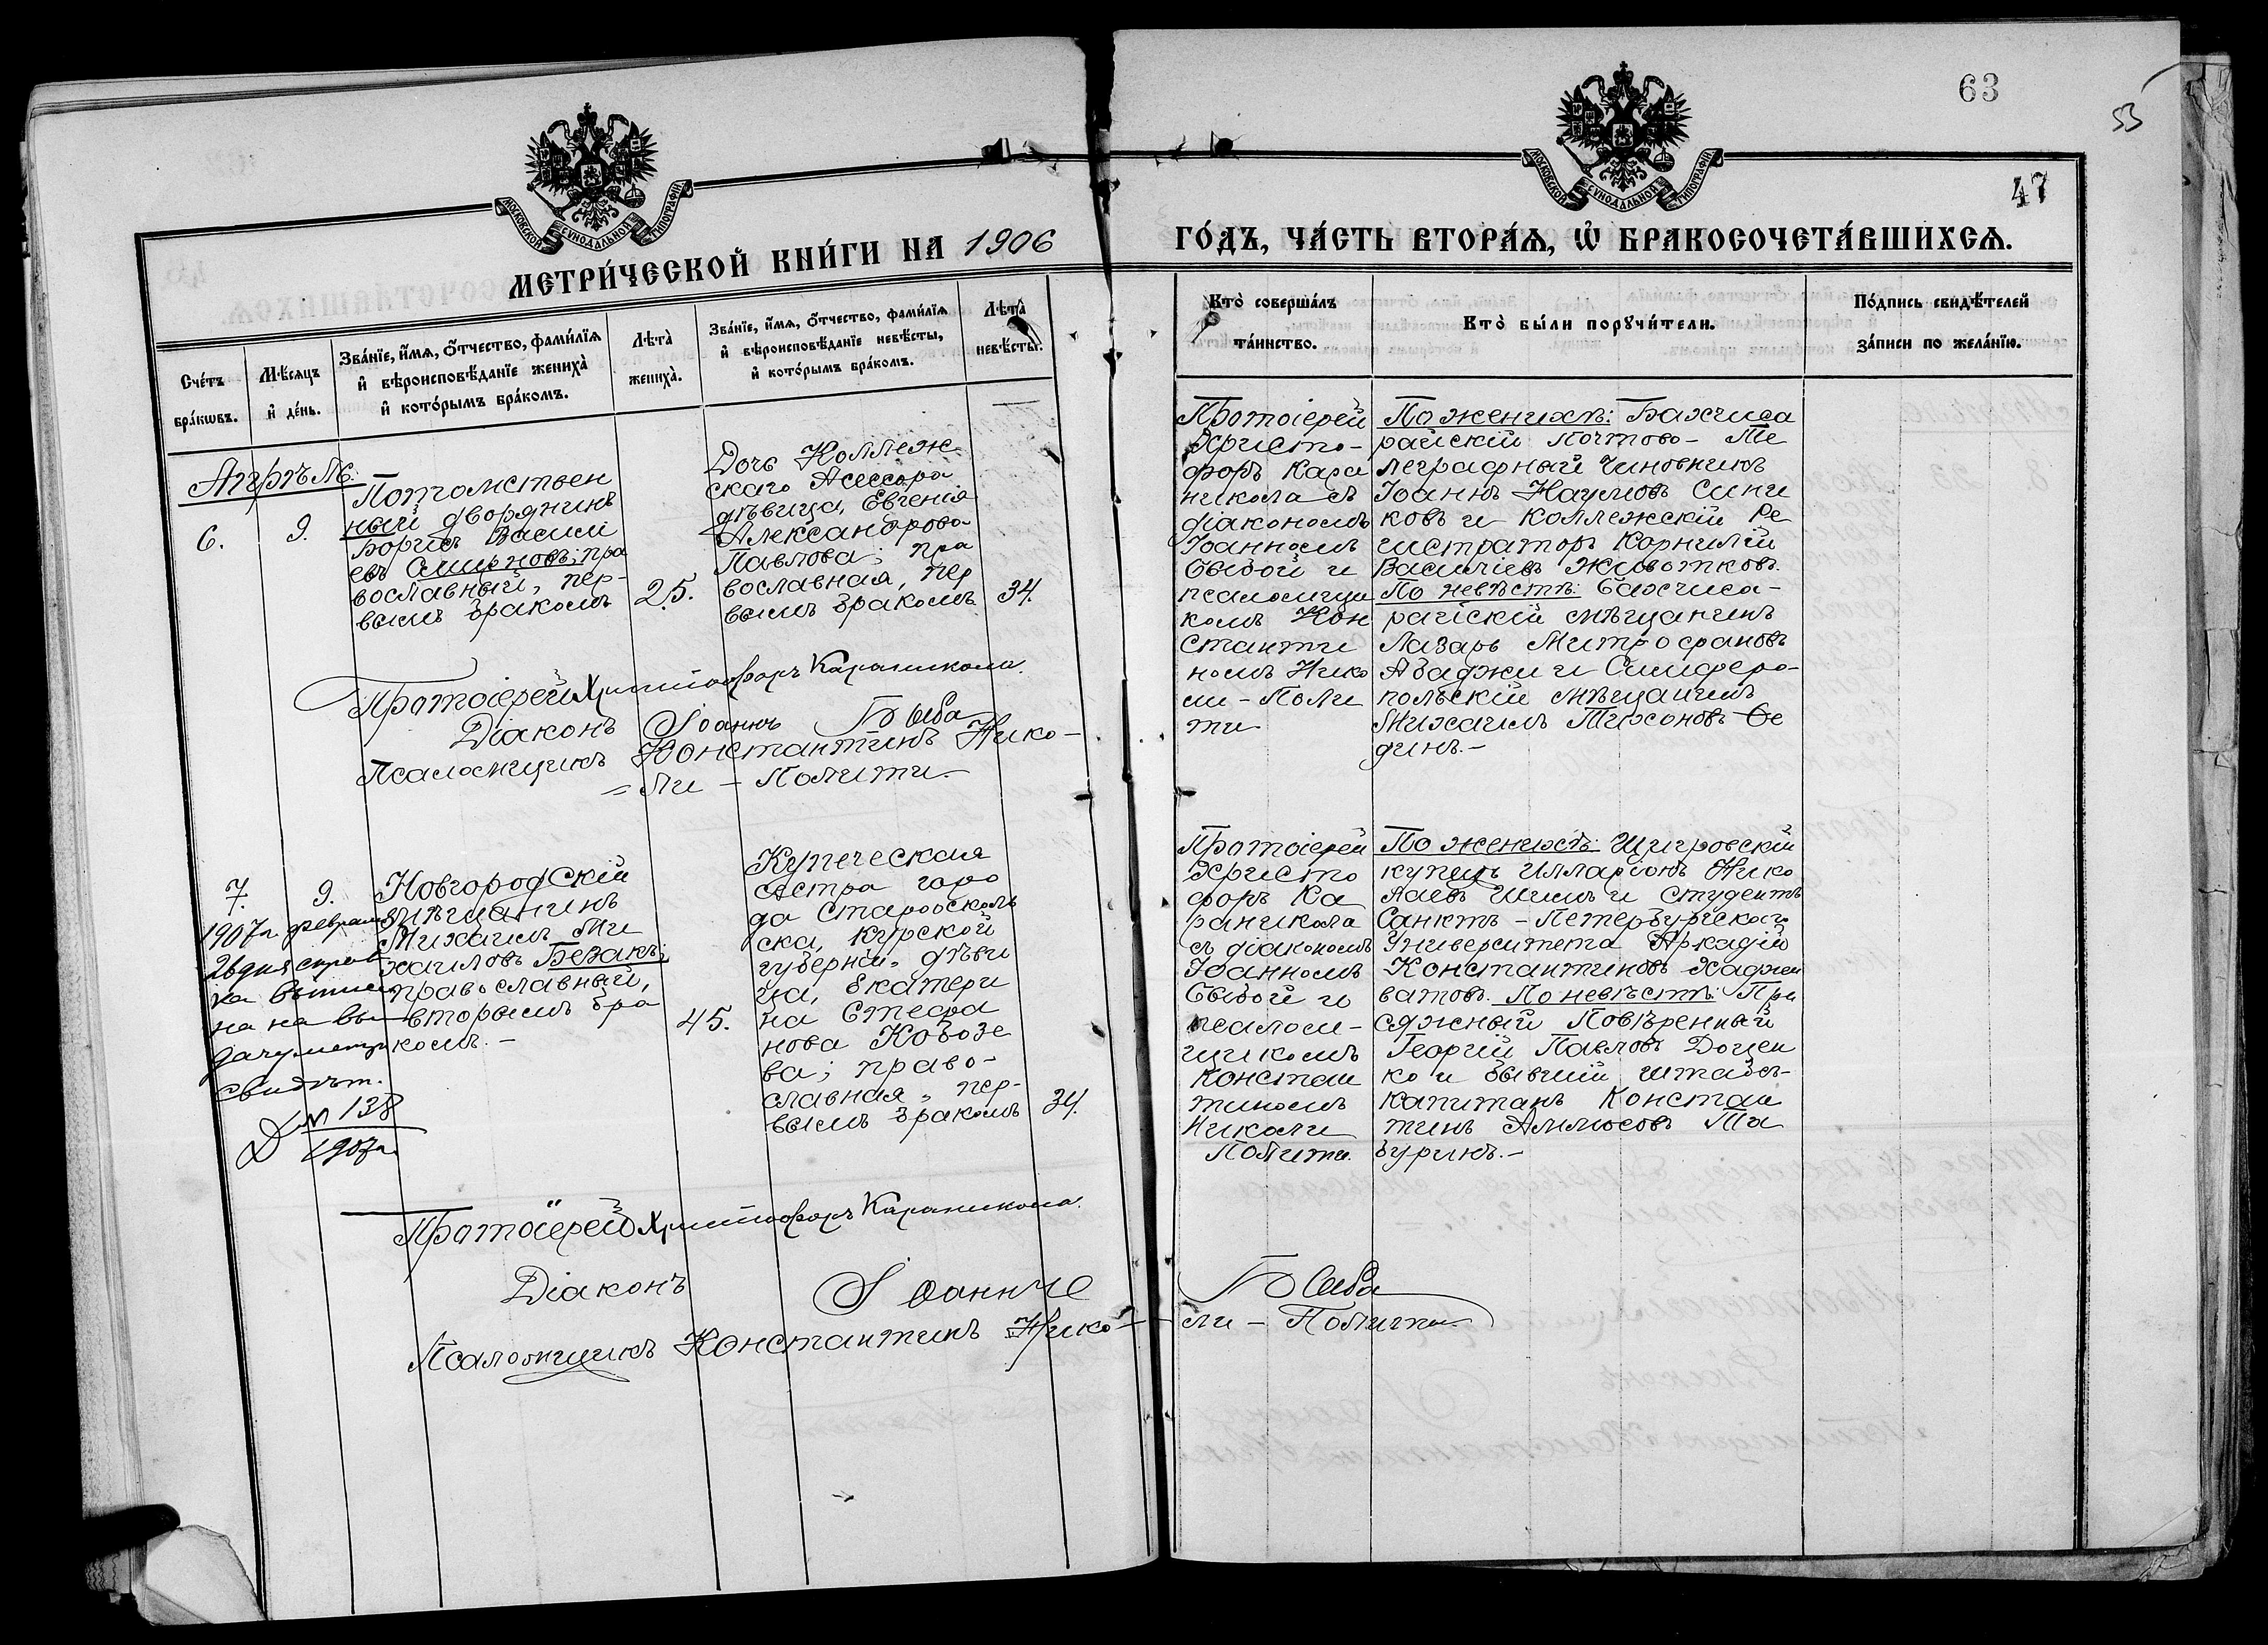 63
55
47
МОСКОВСКОЙ СУНОДАЛЬНОЙ ТИПОГРАФІИ
МОСКОВСКОЙ СУНОДАЛЬНОЙ ТИПОГРАФІИ
МЕТРИ́ЧЕСКОЙ КНИ́ГИ НА 1906
ГО́ДЪ, ЧА́СТЬ ВТОРА́Ѧ, Ѡ҆ БРАКОСОЧЕТА́ВШИХСѦ.
Сче́тъ
бра́кѡвъ.
Мѣ́сяцъ
и҆ де́нь.
Зва́нїе, и҆́мѧ, ѻ҆́тчество, фами́лїѧ
и҆ вѣроисповѣ́данїе жениха̀
и҆ кото́рымъ бра́комъ.
Лѣта̀
жениха̀.
Зва́нїе, и҆́мѧ, ѻ҆́тчество, фами́лїѧ
и҆ вѣроисповѣ́данїе невѣ́сты,
и҆ кото́рымъ бра́комъ.
Лѣта̀
невѣ́сты.
Кто̀ соверша́лъ
та́инство.
Кто̀ бы́ли порꙋчи́тели.
По́дпись свидѣ́телей
за́писи по жела́нїю.
Апрѣль:
6.
9.
Потомствен
ный дворянинъ
Борисъ Васили
евъ Смирновъ; пра
вославный, пер-
вымъ бракомъ
25.
Дочь Коллеж-
скаго Асессора
дѣвица, Евгенія
Александрова
Павлова; пра
вославная, пер
вымъ бракомъ
34.
Протоіерей
Христо-
форъ Кара
никола съ
діакономъ
Іоанномъ
Бывой и
псаломщи
комъ Кон
станти
номъ Нико
ли - Поли
ти
По женихѣ: Бахчиса
райскій Почтово- Те
леграфный Чиновникъ
Іоаннъ Наумовъ Сини
ковъ и Коллежскій Ре
гистраторъ Корнилій
Василіевъ Животковъ.
По невѣстѣ: Бахчиса-
райскій мѣщанинъ
Лазарь Митрофановъ
Абаджи и Симферо-
польскій мѣщанинъ
Михаилъ Тихоновъ Фе
динъ.-
Протоіерей Христофоръ Караникола.
Діаконъ Іоаннъ Быва
Псаломщикъ Константинъ Нико-
= ли - Полити.-
7.
9.
1907 г. февраля
26 дня справ
ка выписа
на на вы
дачу метр.
свидѣт.
№ 138
1907 г.
Новгородскій
мѣщанинъ
Михаилъ Ми
хаиловъ Безакъ;
православный,
вторымъ бра
комъ.-
45.
Купеческая
сестра горо
да Старооскол
ска, Курской
губерніи, дѣви
ца, Екатери
на Стефа
нова Кобозе
ва; право-
славная, пер-
вымъ бракомъ
34.
Протоіерей
Христо
форъ Ка
раникола
съ діакономъ
Іоанномъ
Бывой и
псалом-
щикомъ
Констан
тиномъ
Николи
Полити.
По женихѣ: Щигровскій
купецъ Илларіонъ Нико
лаевъ Шинъ и студентъ
Санктъ - Петербургскаго
Университета Аркадій
Константиновъ Хаджи
ватовъ. По невѣстѣ: При
сяжный Повѣренный
Георгій Павловъ Доцен
ко и бывшій штабсъ-
капитанъ Констан
тинъ Аммосовъ Та
буринъ.-
Протоіерей Христофоръ Караникола.
Діаконъ Іоаннъ Быва
Псаломщикъ Константинъ Нико- ли - Полити.